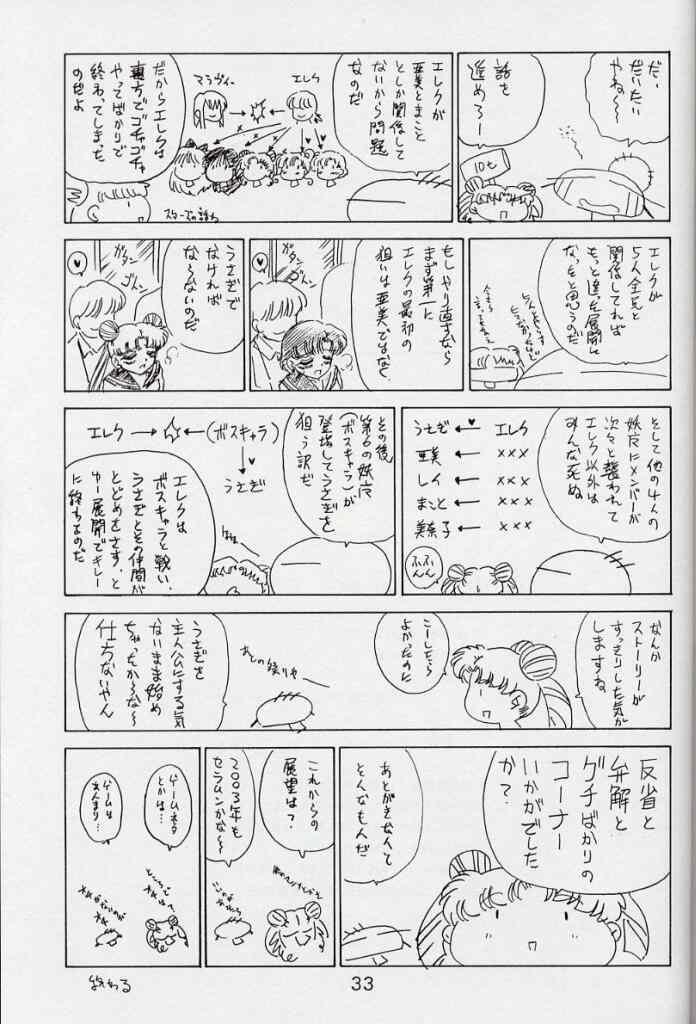 だ、
だいたい
やね〜
話を
進めろー
10t
エレクが
亜美とまこと
としか関係して
ないから問題
なのだ
エレク
マラヴィー
スターズの話ね
だからエレクは
裏方でゴチャゴチャ
やってばかりで
終わってしまった
のだよ
エレクが
5人全員と
関係してれば
もっと違った展開に
なったと思うのだ
もしやり直すなら
まず第一に
エレクの最初の
狙いは亜美ではなく
ガタン
ゴトン
うさぎで
なければ
ならないのだ
ガタン
ゴトン
そして他の4人の
妖魔にメンバーが
次々と襲われて
エレク以外は
みんな死ぬ
うさぎ ← エレク
亜美 ← ×××
レイ ← ×××
まこと ← ×××
美奈子 ← ×××
ふん
ふん
その後
第6の妖魔
(ボスキャラ)が
登場してうさぎを
狙う訳だ
エレク → ☆ ← (ボスキャラ)
うさぎ
エレクは
ボスキャラと戦い、
うさぎとその仲間が
とどめをさす、と
ゆー展開でキレー
に終わるのだ
なんか
ストーリーが
すっきりした気が
しますね
こーしたら
よかったのに
あとの祭りや
うさぎを
主人公にする気
ないまま始め
ちゃったからな〜
仕方ないやん
反省と
弁解と
グチばかりの
コーナー
いかがでした
か？
あとがきなんて
そんなもんだ
これからの
展望は？
2003年も
セラムンかな〜
ゲームネタ
とかは…
ゲームは
あんまり…
終わる
33